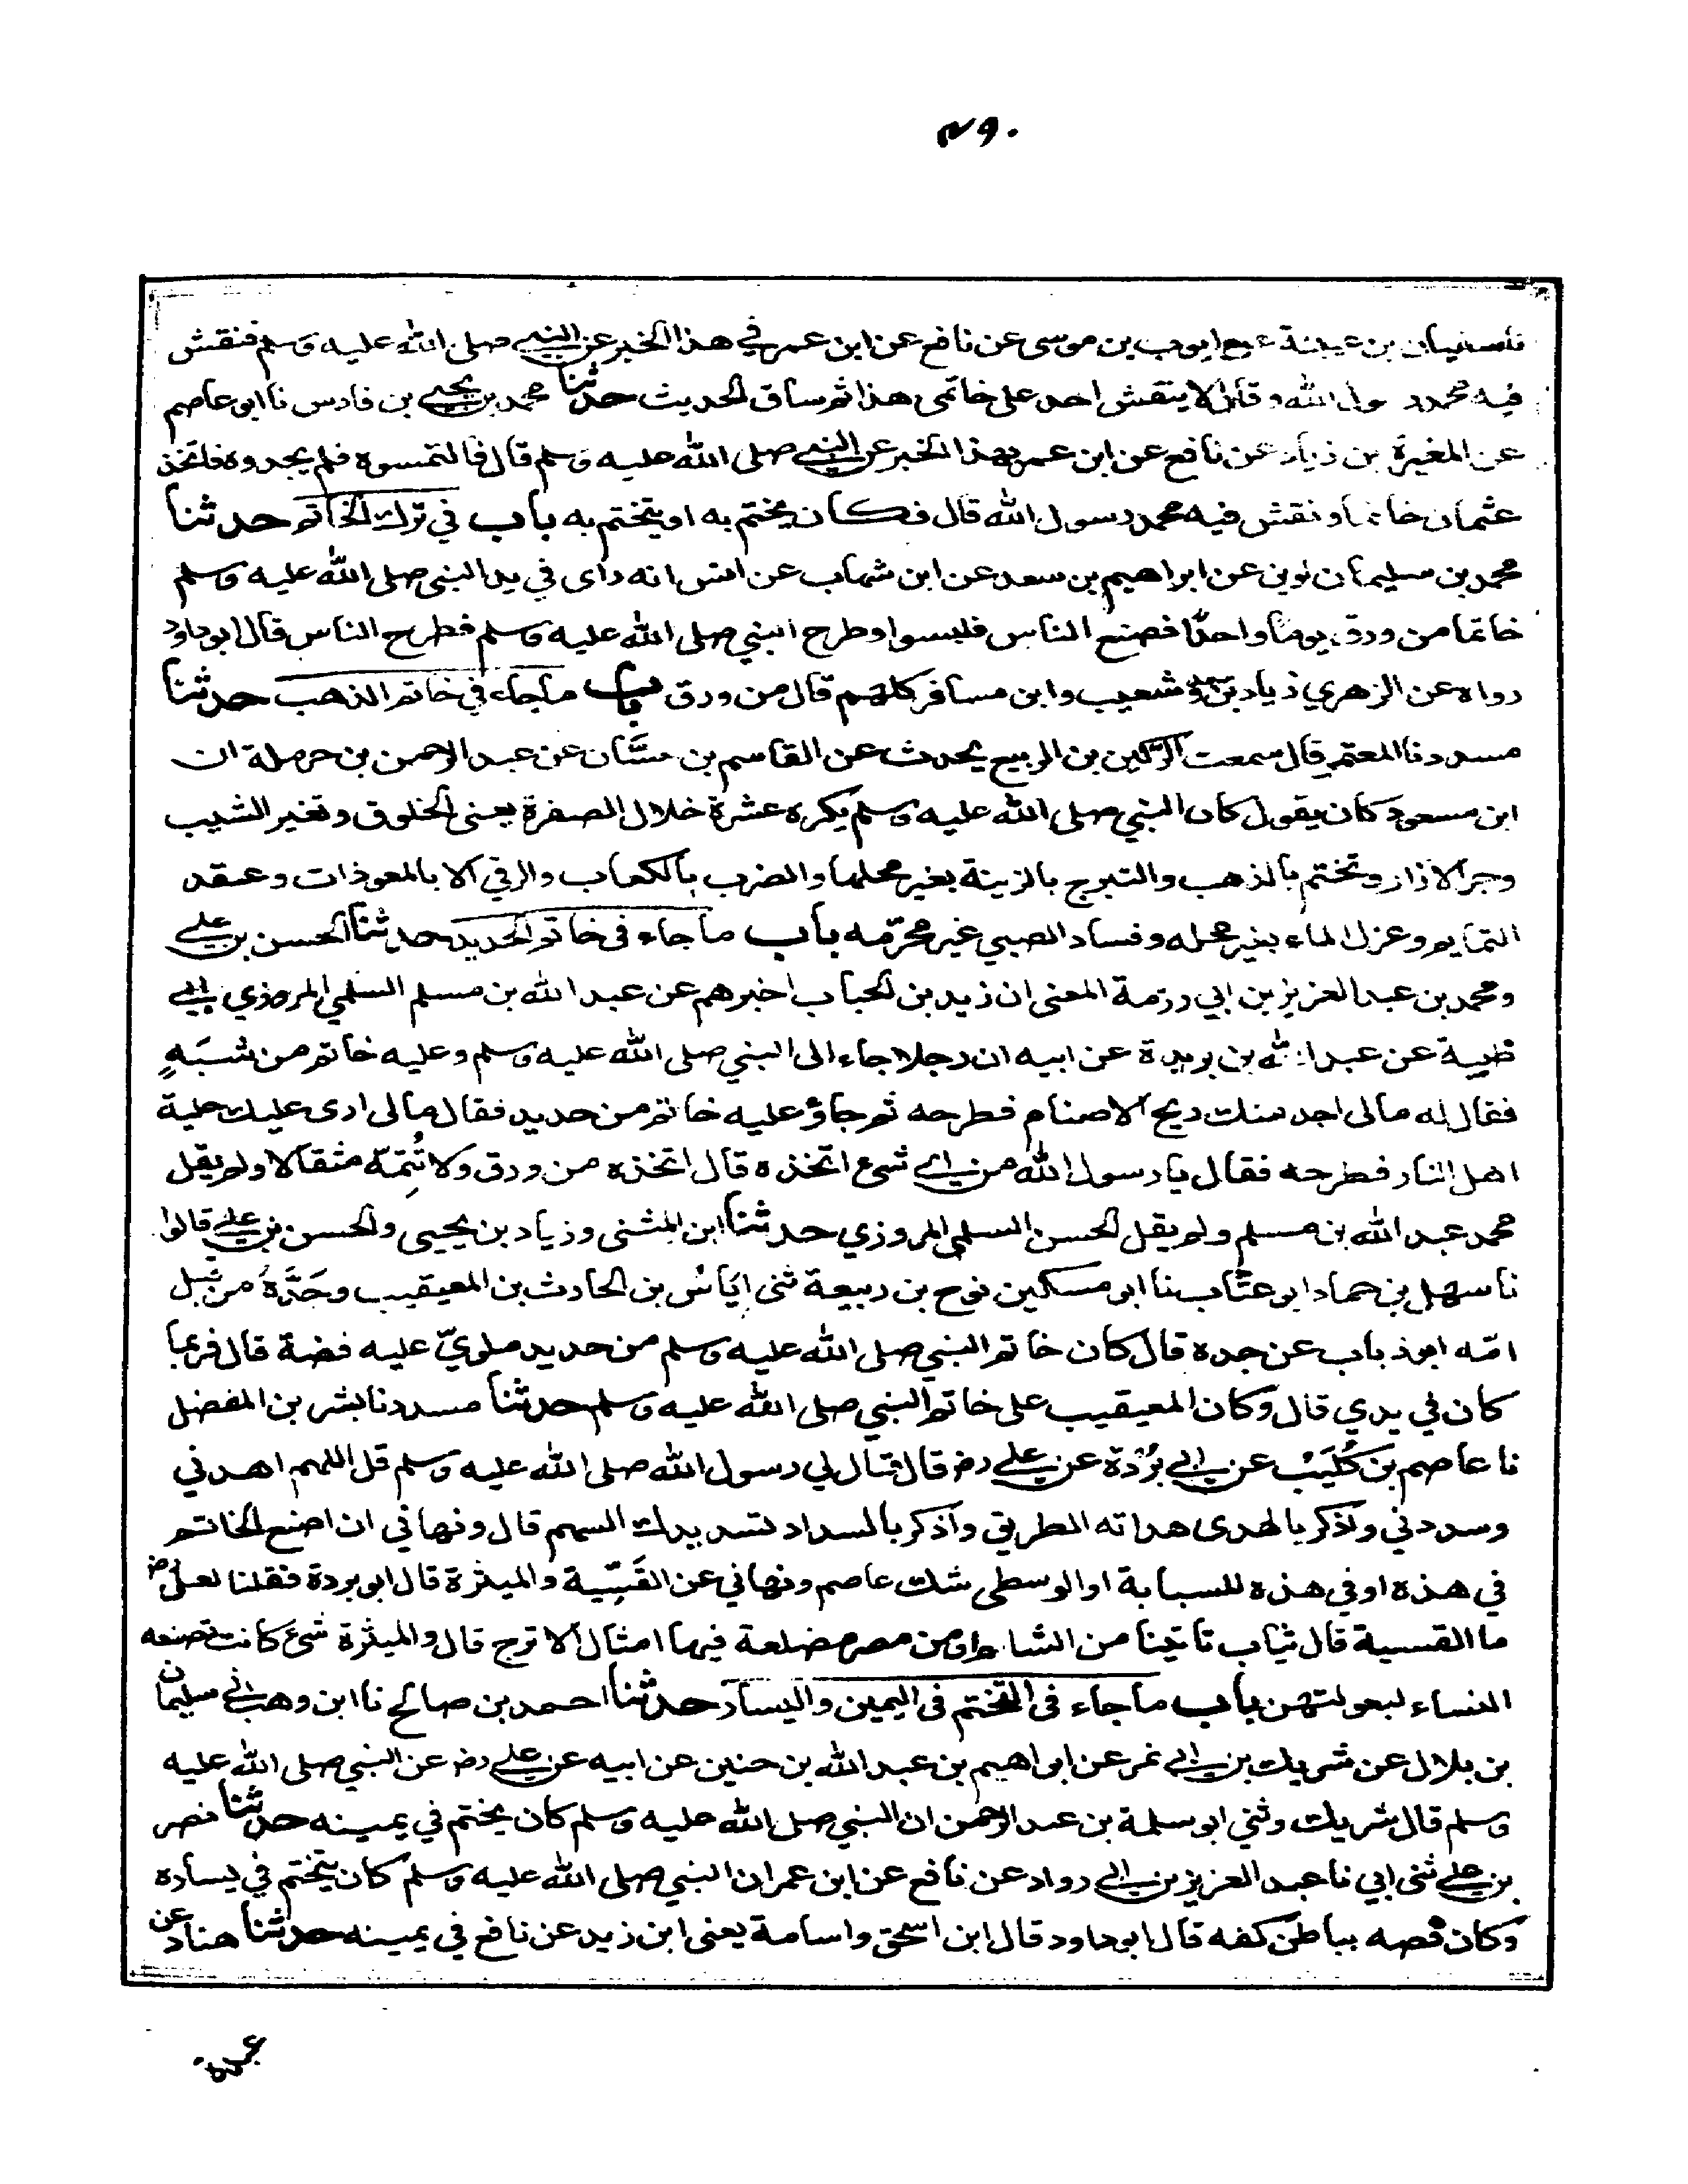 ٤٩٠
نا سفيان بن عيينة عن ايوب بن موسى عن نافع عن ابن عمر في هذا الخبر عن النبي صلى الله عليه وسلم فنقش
فيه محمد رسول الله وقال لا ينقش احد على خاتمى هذا ثم ساق الحديث حدثنا محمد بن يحيى بن فارس نا ابو عاصم
عن المغيرة بن زياد عن نافع عن ابن عمر بهذا الخبر عن النبي صلى الله عليه وسلم قال فالتمسوه فلم يجدوه فاتخذ
عثمان خاتما ونقش فيه محمد رسول الله قال فكان يختم به او يتختم به باب في ترك الخاتم حدثنا
محمد بن سليمان لوين عن ابراهيم بن سعد عن ابن شهاب عن انس انه راى في يد النبي صلى الله عليه وسلم
خاتما من ورق يوما واحدًا فصنع الناس فلبسوا وطرح النبي صلى الله عليه وسلم فطرح الناس قال ابو داود
رواه عن الزهري زياد بن سعد وشعيب وابن مسافر كلهم قال من ورق باب ما جاء في خاتم الذهب حدثنا
مسدد نا المعتمر قال سمعت الركين بن الربيع يحدث عن القاسم بن حسَّان عن عبد الرحمن بن حرملة ان
ابن مسعود كان يقول كان النبي صلى الله عليه وسلم يكره عشرة خلال الصفرة يعنى الخلوق وتغير الشيب
وجر الازار وتختم بالذهب والتبرج بالزينة بغير محلها والضرب بالكعاب والرقي الا بالمعوذات وعقد
التمايم وعزل الماء بغير محله وفساد الصبي غير محرّمه باب ما جاء فى خاتم الحديد حدثنا الحسن بن علي
ومحمد بن عبد العزيز بن ابي رزمة المعنى ان زيد بن الحباب اخبرهم عن عبد الله بن مسلم السلمي المروزي ابي
طيبة عن عبد الله بن بريدة عن ابيه ان رجلا جاء الى النبي صلى الله عليه وسلم وعليه خاتم من شَبَهٍ
فقال له مالى اجد منك ريح الاصنام فطرحه ثم جاؤ عليه خاتم من حديد فقال مالى ارى عليك حلية
اهل النار فطرحه فقال يا رسول الله من اي شئ اتخذه قال اتخذه من ورق ولا تُتِمّه مثقالا ولم يقل
محمد عبد الله بن مسلم ولم يقل الحسن السلمي المروزي حدثنا ابن المثنى وزياد بن يحيى والحسن بن علي قالوا
نا سهل بن حماد ابو عتّاب نا ابو مسكين نوح بن ربيعة ثنى اِيَاسُ بن الحارث بن المعيقيب وجَدَّهُ من قبل
امّه ابو ذباب عن جده قال كان خاتم النبي صلى الله عليه وسلم من حديد ملويّ عليه فضة قال فربما
كان في يدي قال وكان المعيقيب على خاتم النبي صلى الله عليه وسلم حدثنا مسدد نا بشر بن المفضل
نا عاصم بن كُلَيْب عن ابي بُرْدة عن علي رض قال قال لي رسول الله صلى الله عليه وسلم قل اللهم اهدني
وسددني واذكر بالهدى هداته الطريق واذكر بالسداد تسديدك السهم قال ونهاني ان اصنع الخاتم
في هذه او في هذه للسبابة او الوسطى شك عاصم ونهاني عن القَسِّية والميثرة قال ابو بردة فقلنا لعلي رض
ما القسية قال ثياب تاتينا من الشام او من مصر مضلعة فيها امثال الاترج قال والميثرة شئ كانت تصنعه
النساء لبعولتهن باب ما جاء فى التختم فى اليمين واليسار حدثنا احمد بن صالح نا ابن وهب اني سليمان
بن بلال عن شريك بن ابي نمر عن ابراهيم بن عبد الله بن حنين عن ابيه عن علي رض عن النبي صلى الله عليه
وسلم قال شريك وثني ابو سلمة بن عبد الرحمن ان النبي صلى الله عليه وسلم كان يختم في يمينه حدثنا نصر
بن علي ثنى ابي نا عبد العزيز بن ابي رواد عن نافع عن ابن عمر ان النبي صلى الله عليه وسلم كان يتختم في يساره
وكان فصه بباطن كفه قال ابو داود قال ابن اسحق واسامة يعنى ابن زيد عن نافع في يمينه حدثنا هناد عن
عبدة